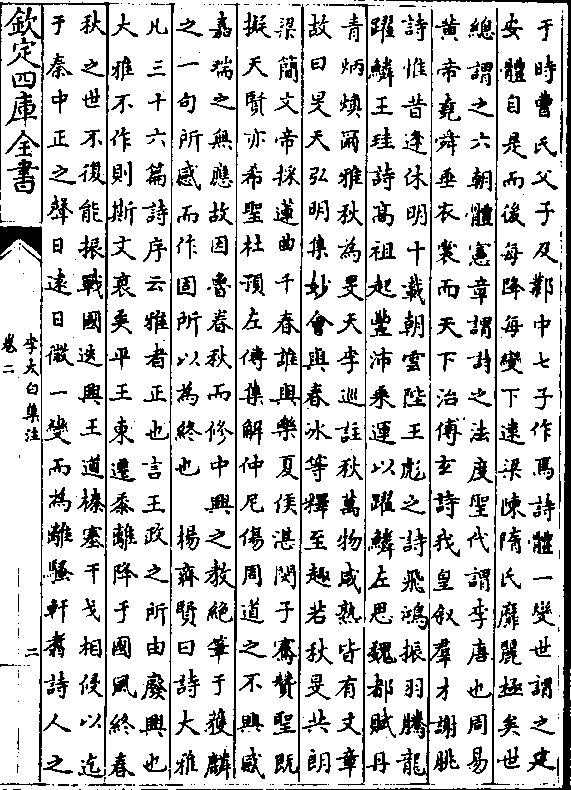 于時曹氏父子及鄴中七子作焉詩體一變世謂之建
安體自是而後每降每變下逮梁陳隋氏靡麗極矣世
總謂之六朝體憲章謂詩之法度聖代謂李唐也周易
黄帝堯舜垂衣裳而天下治傅玄詩我皇叙羣才謝朓
詩惟昔逢休明十載朝雲陛王彪之詩飛鴻振羽騰龍
躍鱗王珪詩高祖起豐沛乘運以躍鱗左思魏都賦丹
青炳煥爾雅秋為旻天李巡註秋萬物成熟皆有文章
故曰旻天弘明集妙會與春冰等釋至趣若秋旻共朗
梁簡文帝採蓮曲千春誰與樂夏侯湛閔子騫贊聖既
擬天賢亦希聖杜預左傳集解仲尼傷周道之不興感
嘉瑞之無應故因魯春秋而修中興之教絶筆于獲麟
之一句所感而作固所以為終也　楊齊賢曰詩大雅
凡三十六篇詩序云雅者正也言王政之所由廢興也
大雅不作則斯文衰矣平王東遷黍離降于國風終春
秋之世不復能振戰國迭興王道榛塞干戈相侵以迄
于秦中正之聲日遠日微一變而為離騷軒翥詩人之
欽定四庫全書
李太白集注
卷二
二